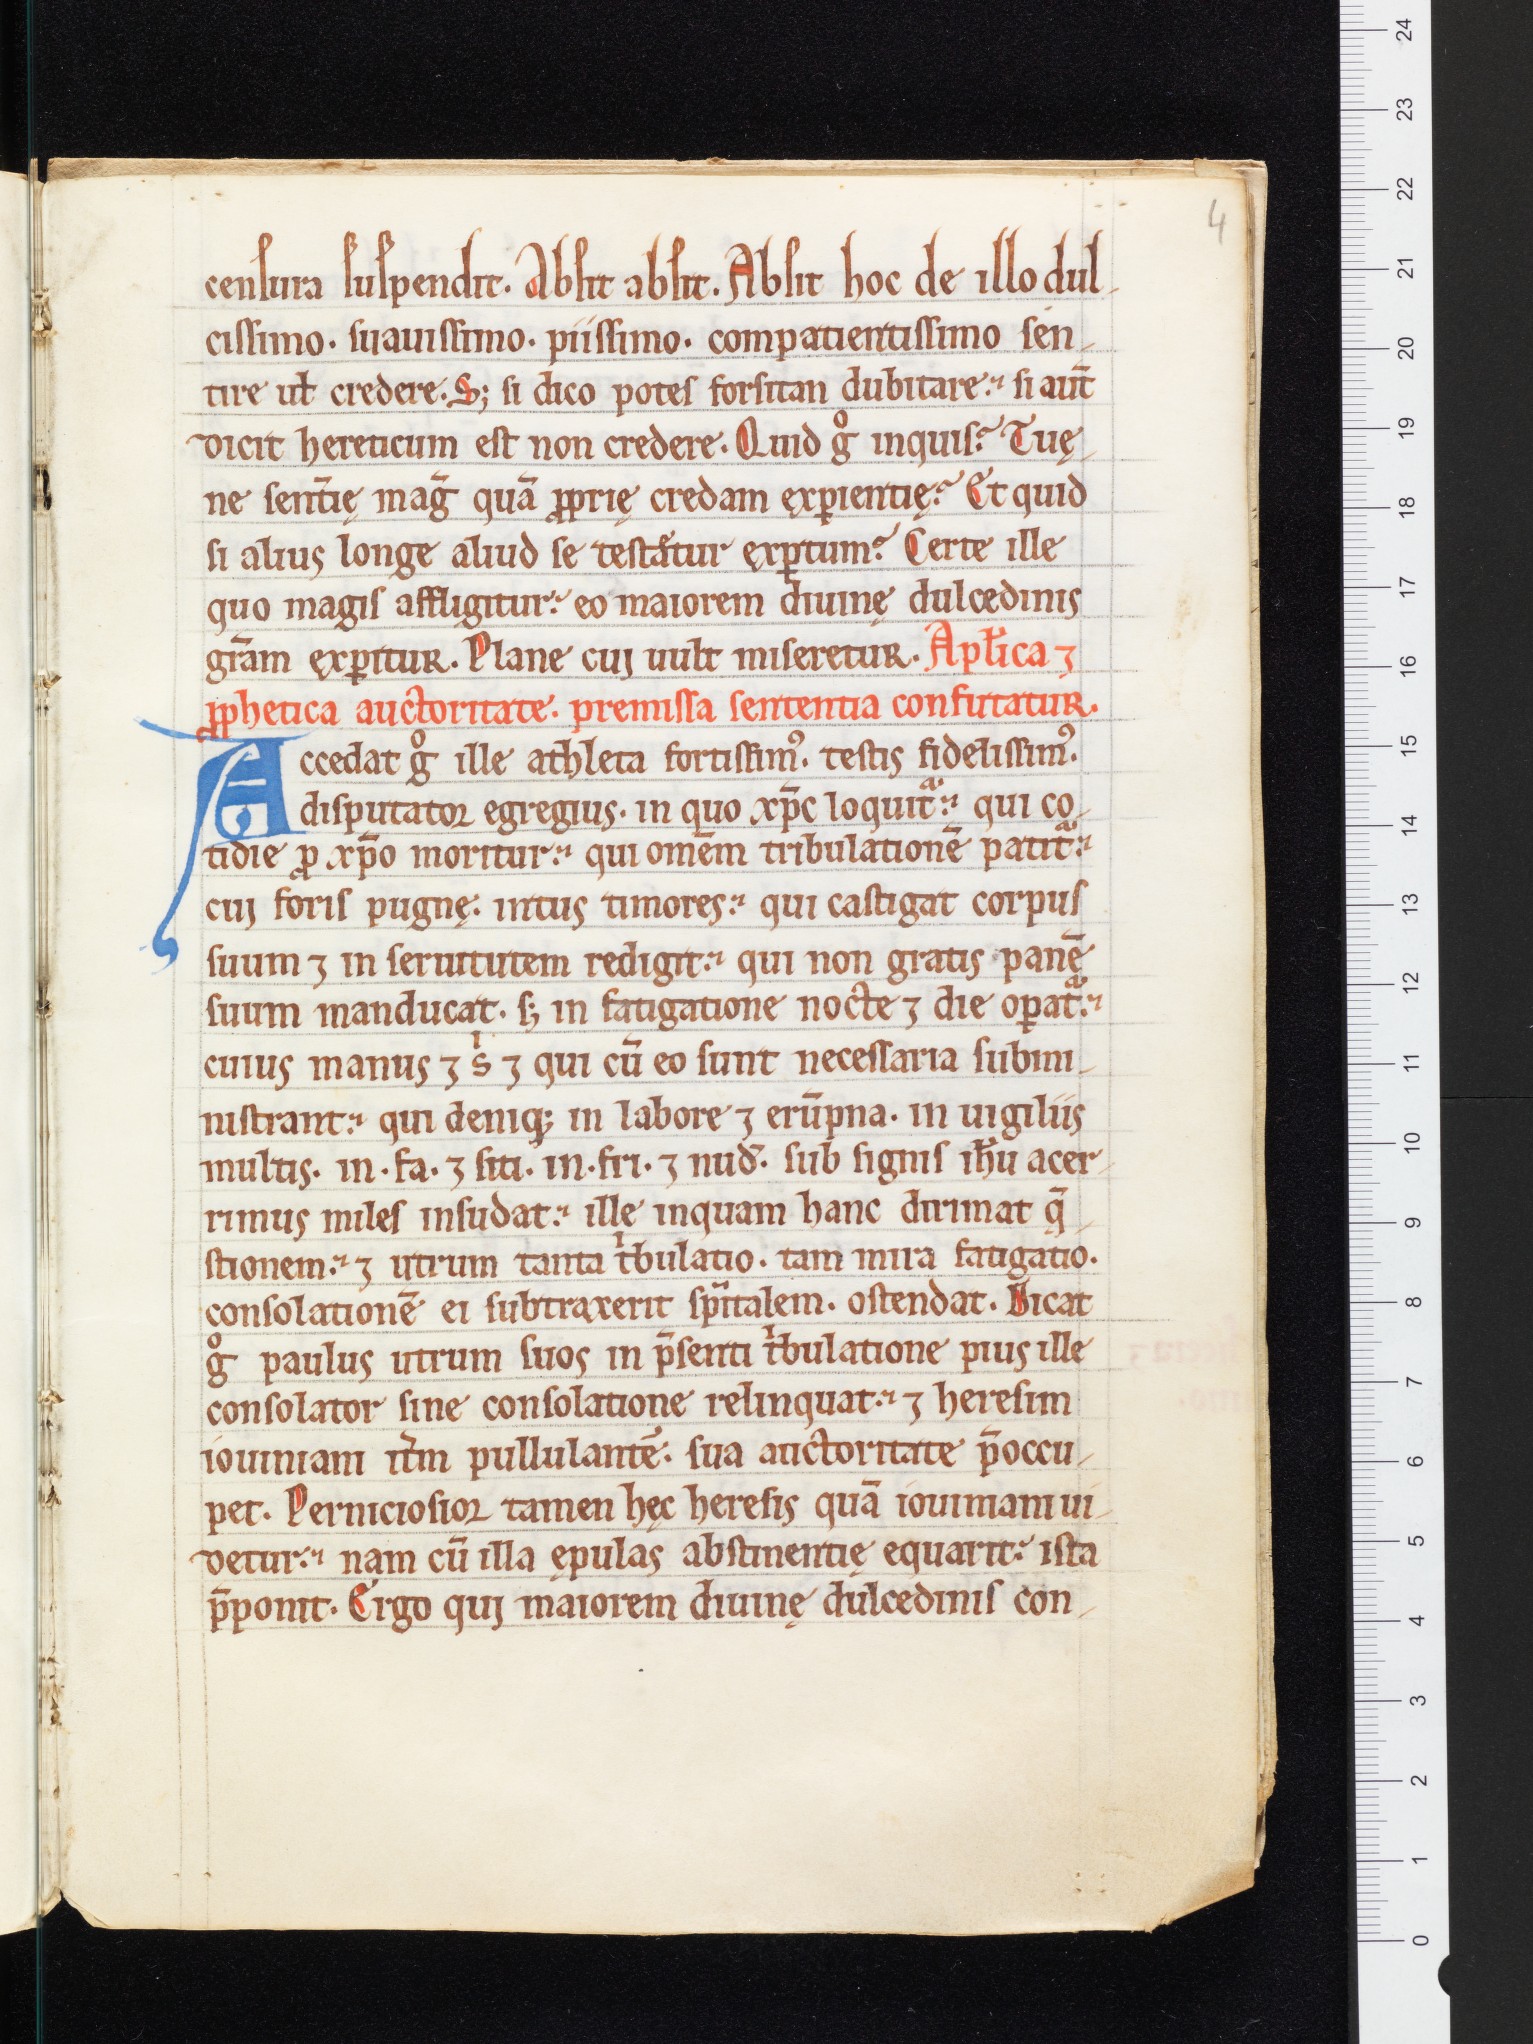 4
censura suspendit. Absit absit. Absit hoc de illo dul-
cissimo. suauissimo. piissimo. compatientissimo sen-
tire uł credere. S; si dico potes forsitan dubitare. si aut̄
dicit hereticum est non credere. Quid gͦ inquis? Tuę-
ne sent̄ię mag̃ quā ꝓprię credam exꝑientię? Et quid
si alius longe aliud se testatur exꝑtum? Certe ille
quo magis affligitur. eo maiorem diuinę dulcedinis
gr̄am exꝑitur. Plane cui uult miseretur. Aplīca ⁊
ꝓphetica auctoritate. premissa sententia confutatur.
Accedat gͦ ille athleta fortissim᾽. testis fidelissim᾽.
disputator egregius. in quo xp̄c loquit᷑. qui co-
tidie ꝓ xp̄o moritur. qui om̄em tribulationē patit᷑.
cui foris pugnę. intus timores. qui castigat corpus
suum ⁊ in seruitutem redigit. qui non gratis panē
suum manducat. s; in fatigatione nocte ⁊ die oꝑat᷑.
cuius manus ⁊ sⁱ ⁊ qui cū eo sunt necessaria submi-
nistrant. qui deniq; in labore ⁊ erūpna. in uigiliis
multis. in. fa. ⁊ siti. in. fri. ⁊ nud̄. sub signis ih̄u acer-
rimus miles insudat. ille inquam hanc dirimat q̄-
stionem. ⁊ utrum tanta tⁱbulatio. tam mira fatigatio.
consolationē ei subtraxerit sp̄italem. ostendat. Dicat
gͦ paulus utrum suos in p̄senti tⁱbulatione pius ille
consolator sine consolatione relinquat. ⁊ heresim
iouiniani it̄m pullulantē. sua auctoritate p̄occu-
pet. Perniciosior tamen hęc heresis quā iouiniani ui-
detur. nam cū illa ępulas abstinentię equarit. ista
p̄ponit. Ergo qui maiorem diuinę dulcedinis con-
24
23
22
21
20
19
18
17
16
15
14
13
12
11
10
9
8
7
6
5
4
3
2
1
0